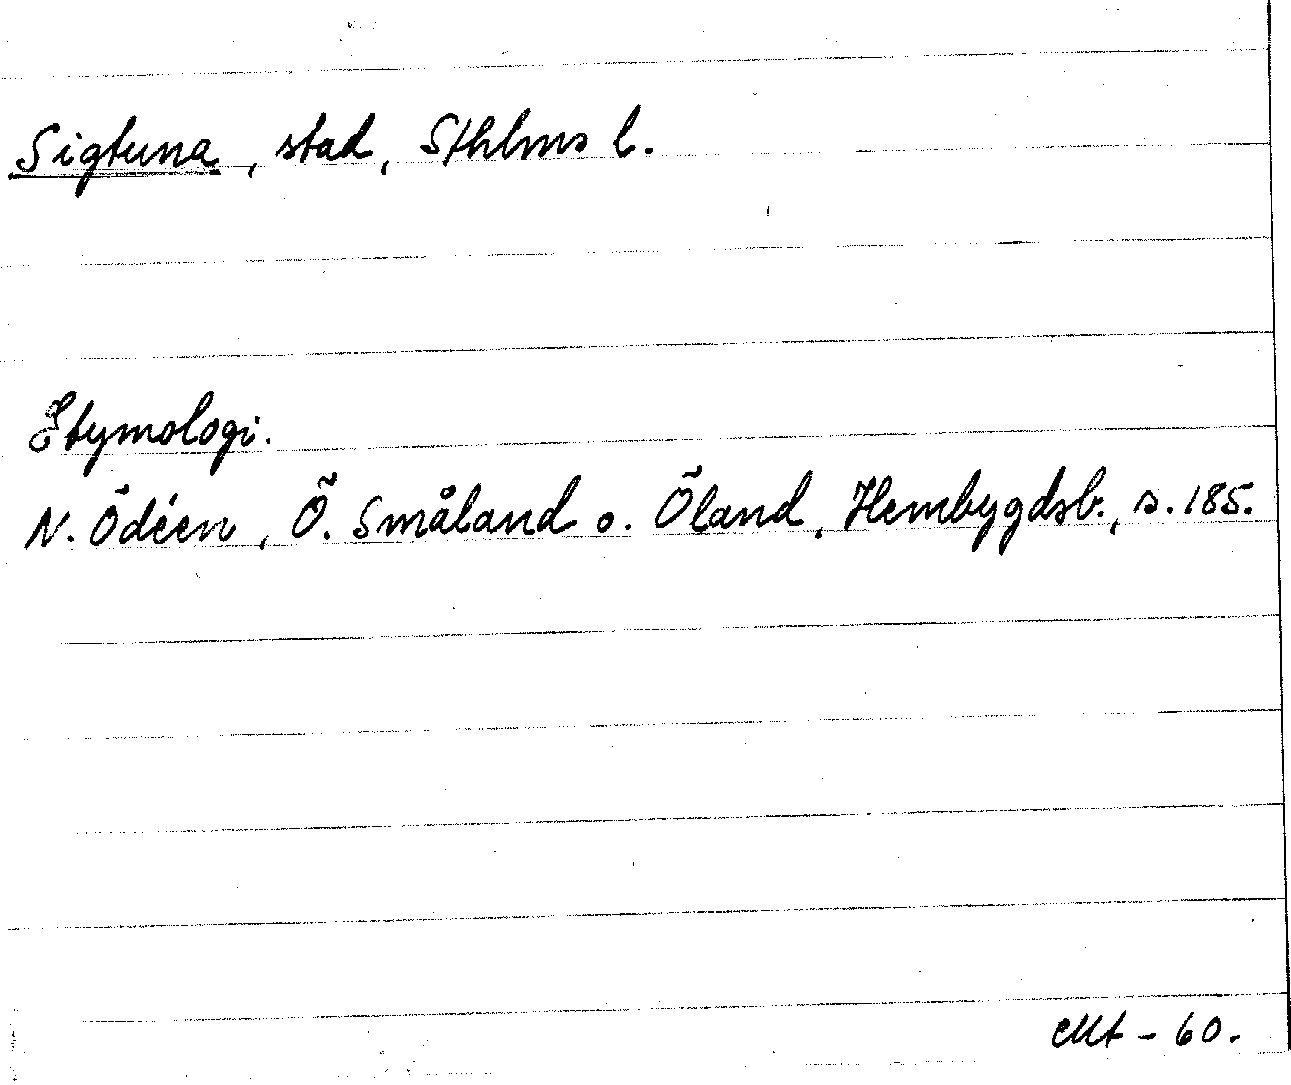 Sigtuna, stad, Sthlms l.
Etymologi.
N. Ödéen, Ö. Småland o. Öland, Hembygdsb., s. 185.
- 60.